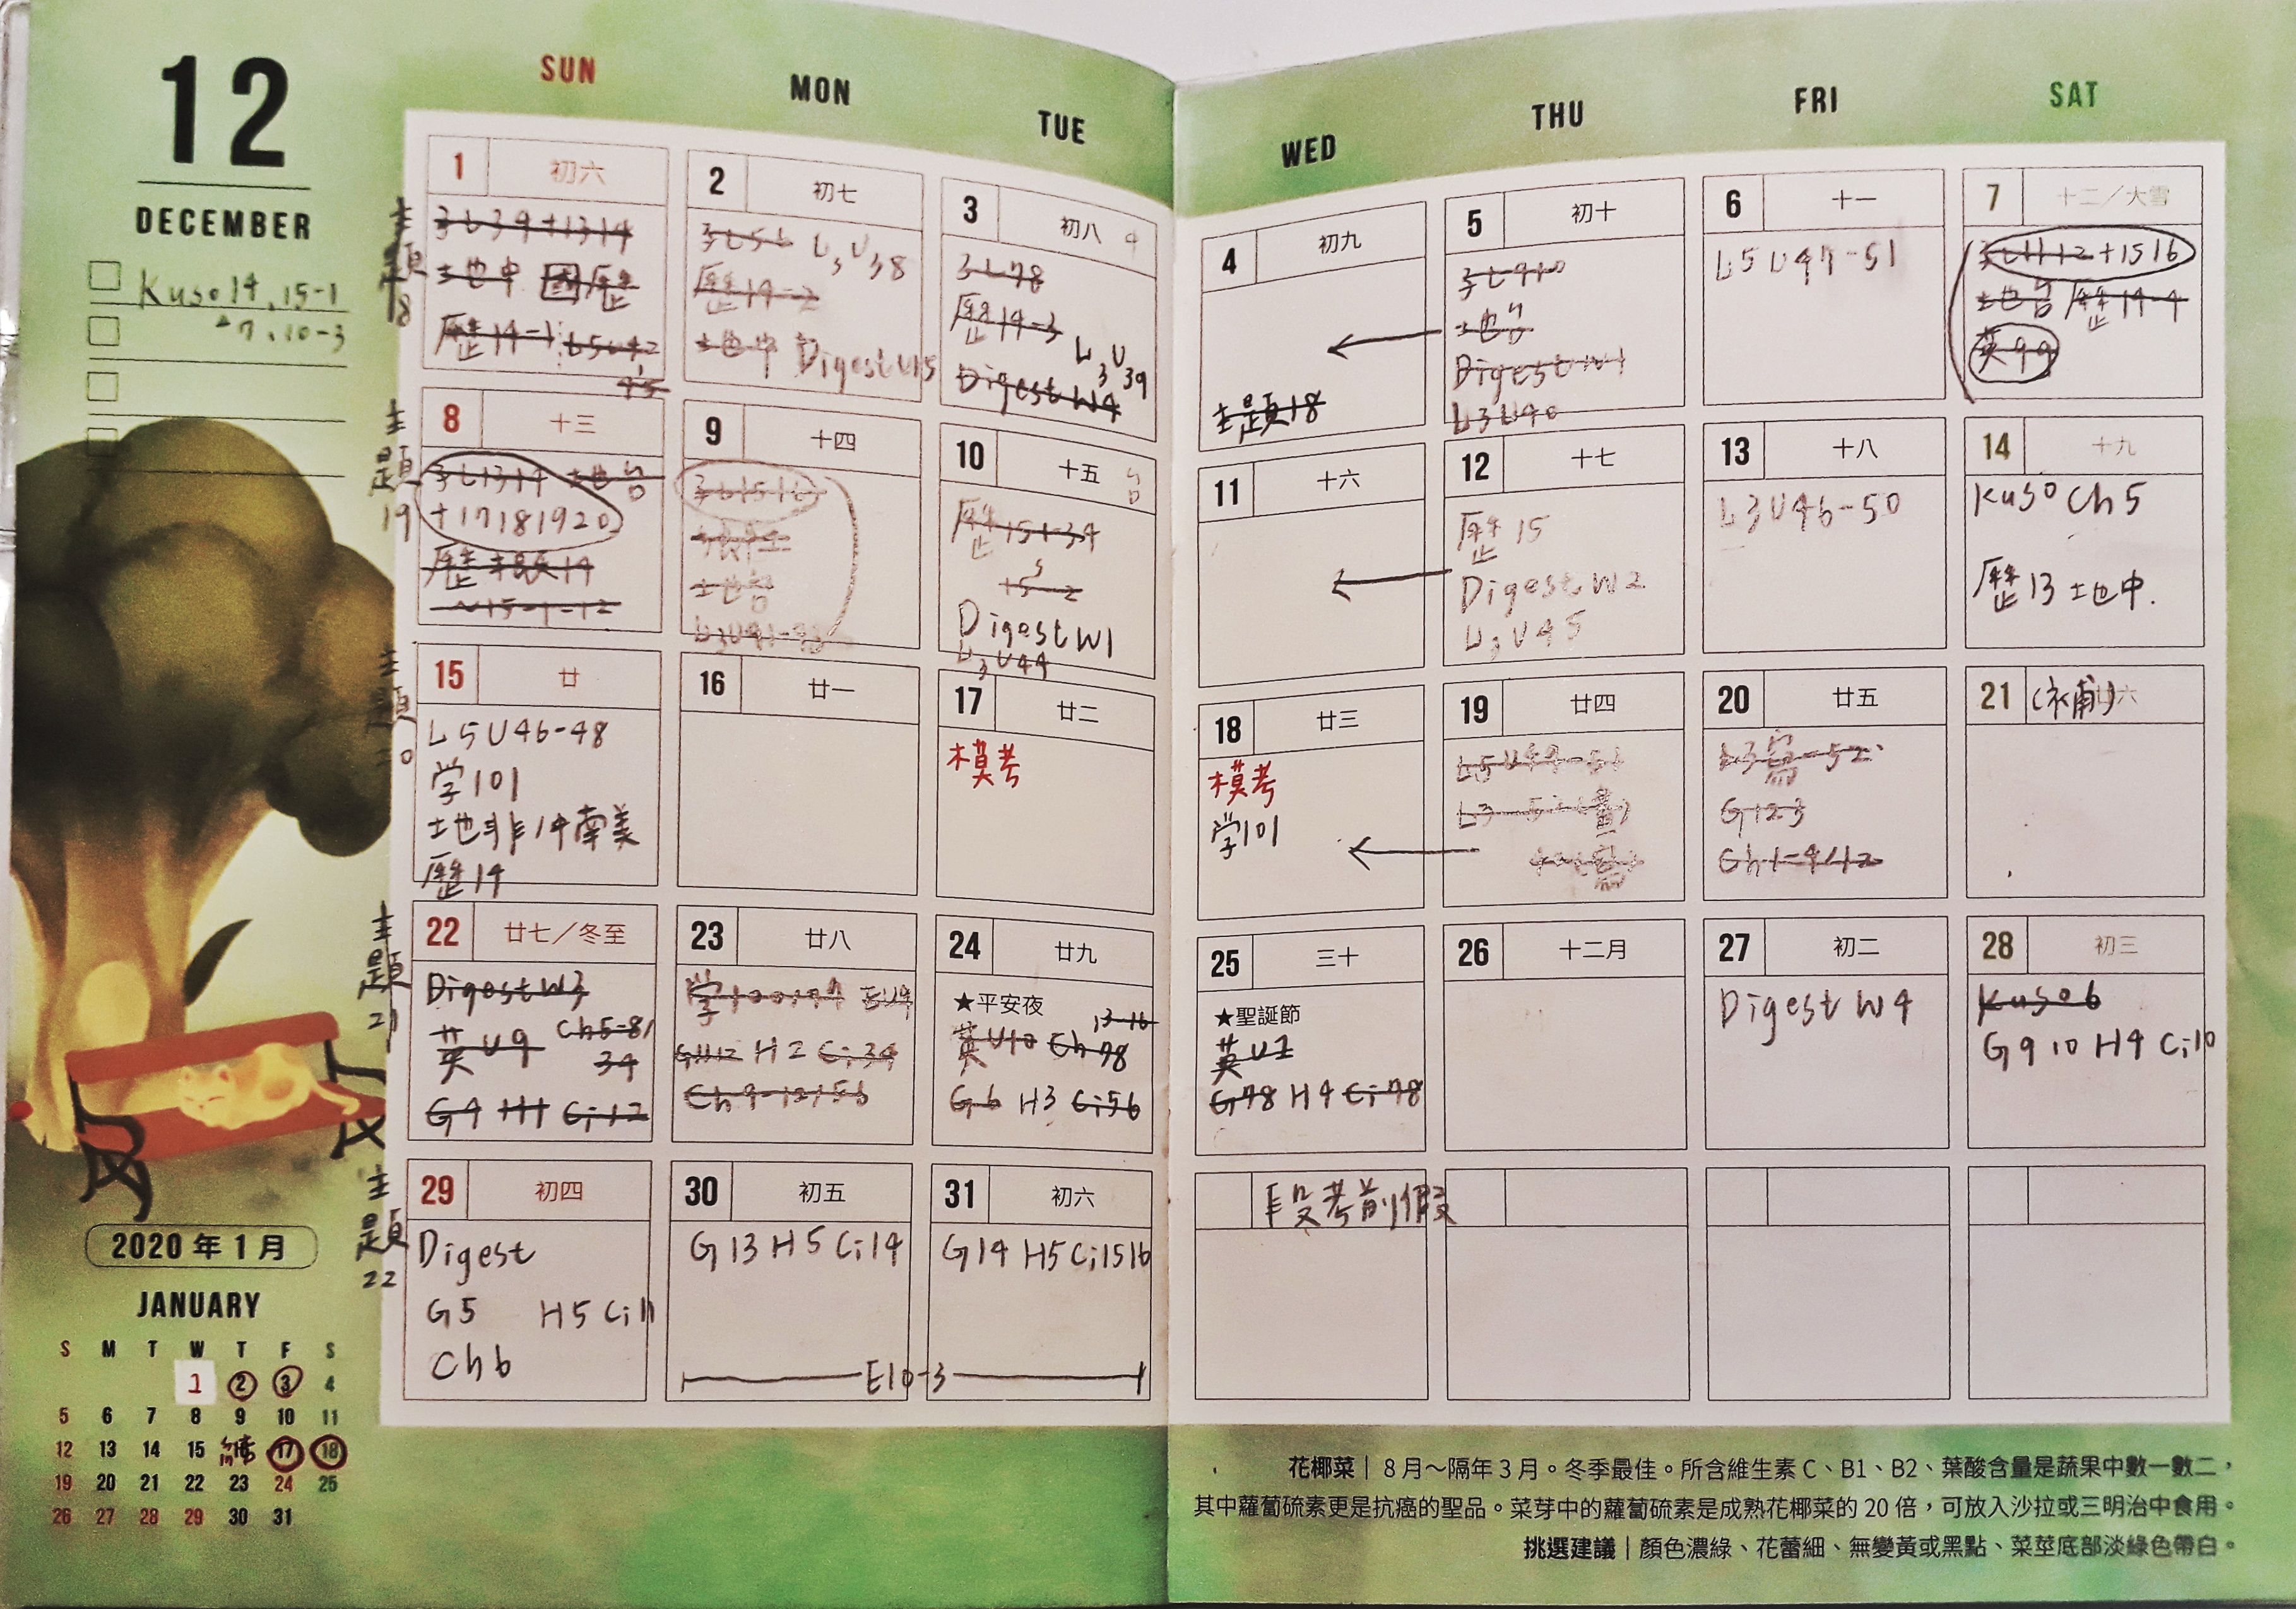 12
DECEMBER
Kuso 14, 15-1
7, 10-3
SUN
MON
TUE
WED
THU
FRI
SAT
1 初六
地中 國歷
歷14-1
主題18
2 初七
L3U38
歷14-2
地中 Digest W5
3 初八
歷14-3
L3U39
Digest W4
4 初九
主題18
5 初十
地台
Digest W1
L3U40
6 十一
L5U47-51
7 十二/大雪
1112+1516
地台 歷14-4
英99
8 十三
1314 地台
+17181920
歷 14
~15-1-12
主題19
9 十四
1516
地台
L3U41-43
10 十五
歷15
Digest W1
L3U44
11 十六
12 十七
歷15
Digest W2
L3U45
13 十八
L3U46-50
14 十九
Kuso Ch5
歷13 地中.
15 廿
L5U46-48
学101
地非14南美
歷14
主題20
16 廿一
17 廿二
模考
18 廿三
模考
学101
19 廿四
L5U49-51
20 廿五
L3寫-52
G123
Ch1-4/12
21 (補) 廿六
22 廿七/冬至
Digest W3
英U9 Ch5-8/
34
G4 H1 Ci12
主題21
23 廿八
学100,99
G1112 H2 Ci34
Ch9-12/56
24 廿九
★平安夜
英U10 Ch 13-16
78
G6 H3 Ci56
25 三十
★聖誕節
英U1
G78 H4 Ci78
26 十二月
27 初二
Digest W4
28 初三
Kuso 6
G9 10 H4 Ci10
29 初四
Digest
G5 H5 Ci11
Ch6
主題22
30 初五
G13 H5 Ci14
31 初六
G14 H5 Ci1516
E10-3
段考前假
2020年1月
JANUARY
S M T W T F S
1 2 3 4
5 6 7 8 9 10 11
12 13 14 15 16 17 18
19 20 21 22 23 24 25
26 27 28 29 30 31
花椰菜|8月~隔年3月。冬季最佳。所含維生素C、B1、B2、葉酸含量是蔬果中數一數二,
其中蘿蔔硫素更是抗癌的聖品。菜芽中的蘿蔔硫素是成熟花椰菜的20倍,可放入沙拉或三明治中食用。
挑選建議|顏色濃綠、花蕾細、無變黃或黑點、菜莖底部淡綠色帶白。